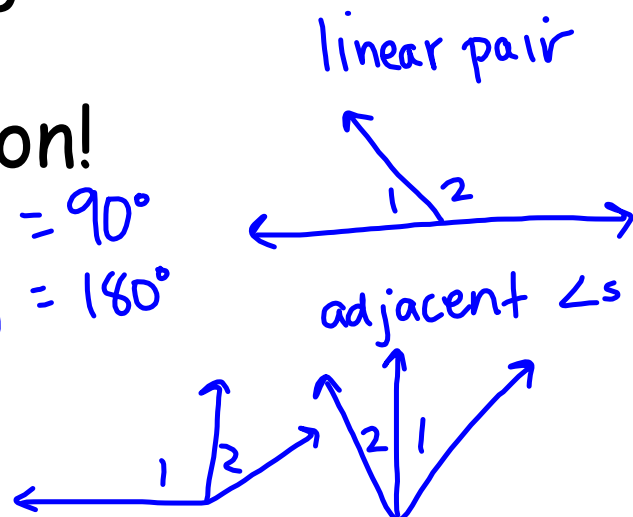 linear pair
on!
1 2
= 90°
= 180°
adjacent ∠s
1 2
2 1